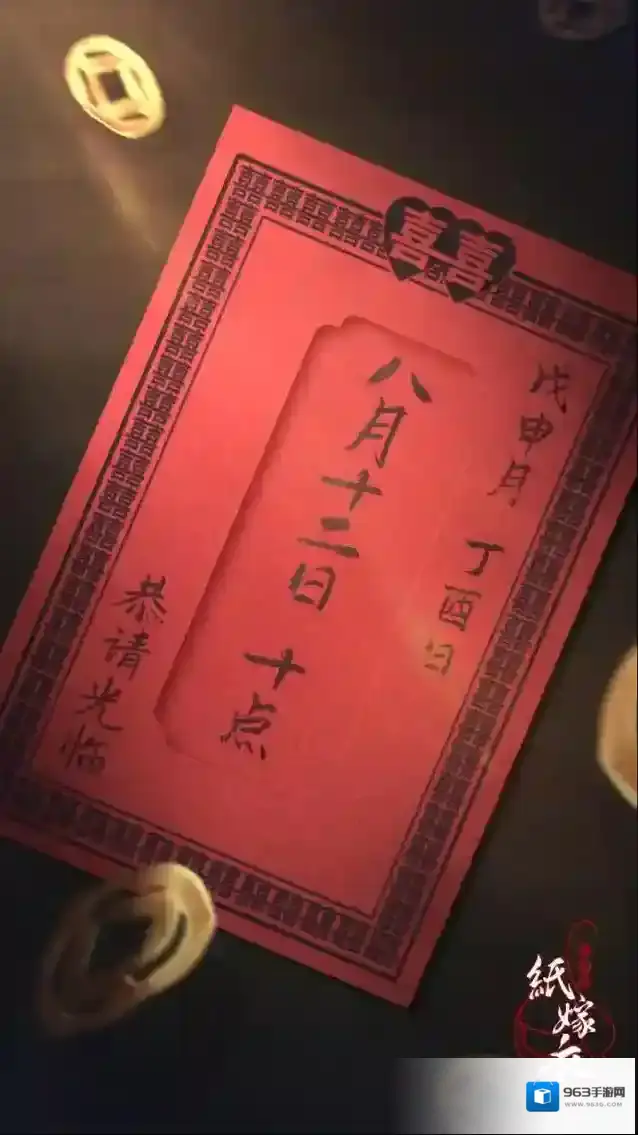 囍
戊申月 丁酉日
八月十二日 十点
恭请光临
紙嫁衣
963手游网
WWW.963G.COM